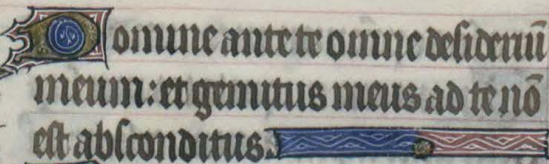 Domine ante te omne desideriū
meum: et gemitus meus ad te nō
est absconditus.